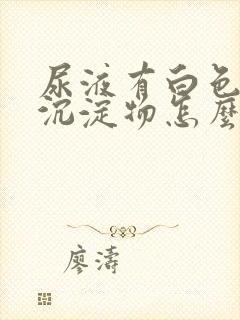 尿液有白色
沉淀物怎麼
廖濤